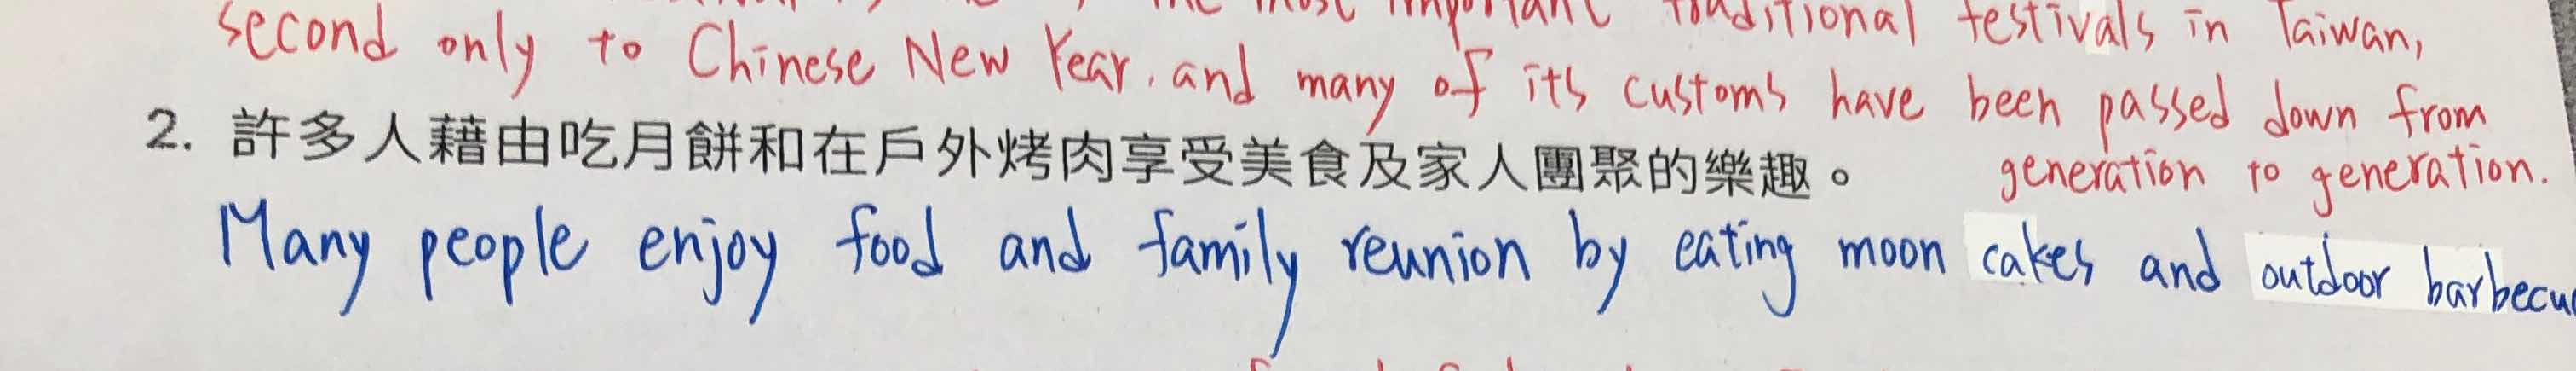 the most important traditional festivals in Taiwan,
second only to Chinese New Year, and many of its customs have been passed down from
generation to generation.
2. 許多人藉由吃月餅和在戶外烤肉享受美食及家人團聚的樂趣。
Many people enjoy food and family reunion by eating moon cakes and outdoor